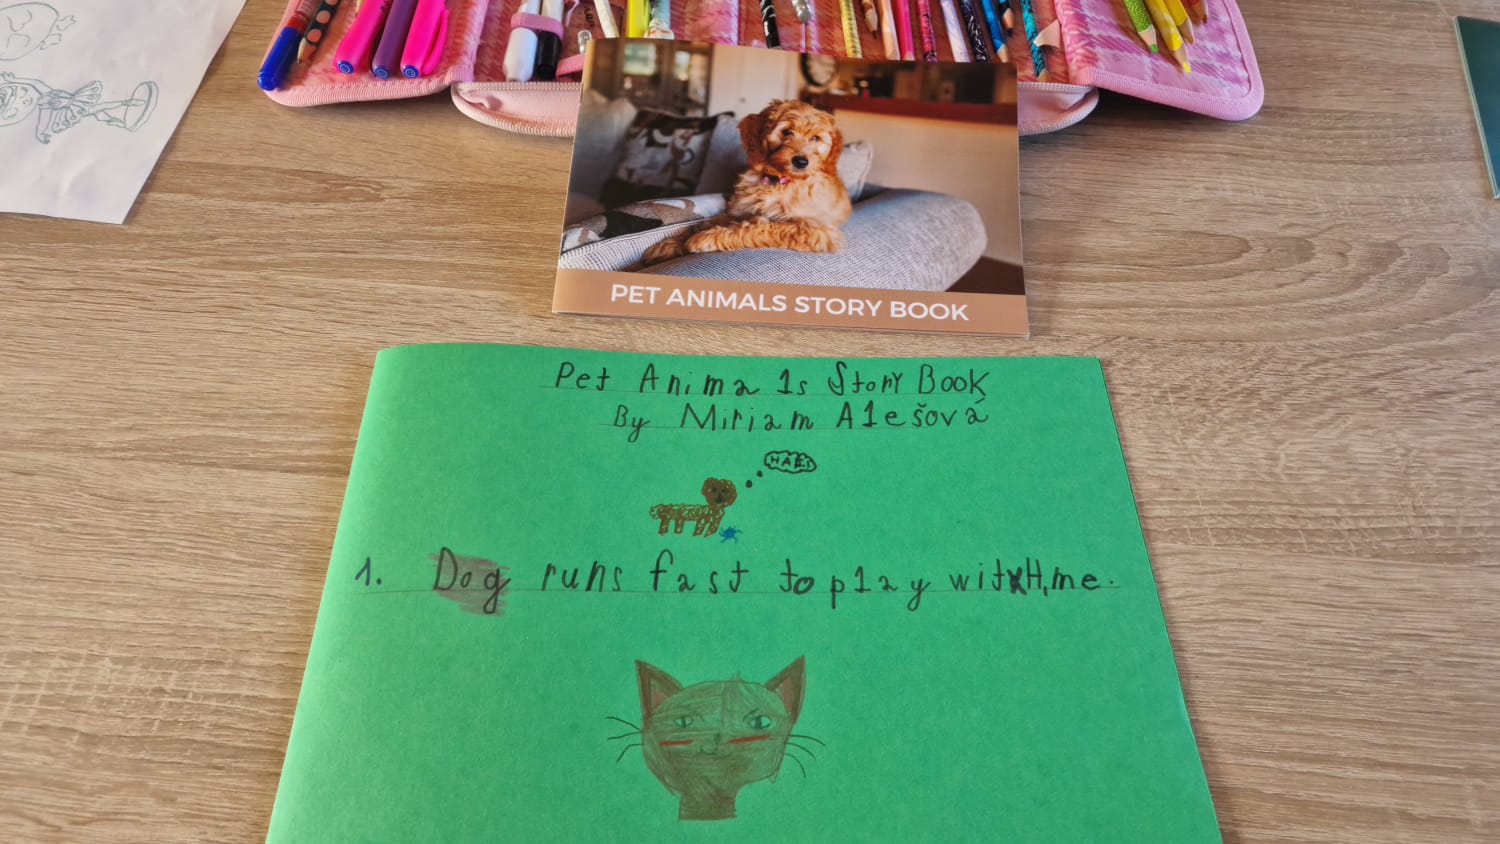 PET ANIMALS STORY BOOK
Pet Anima1s Story Book
By Miriam A1ešová
1. Dog runs fast to p1ay witH me.